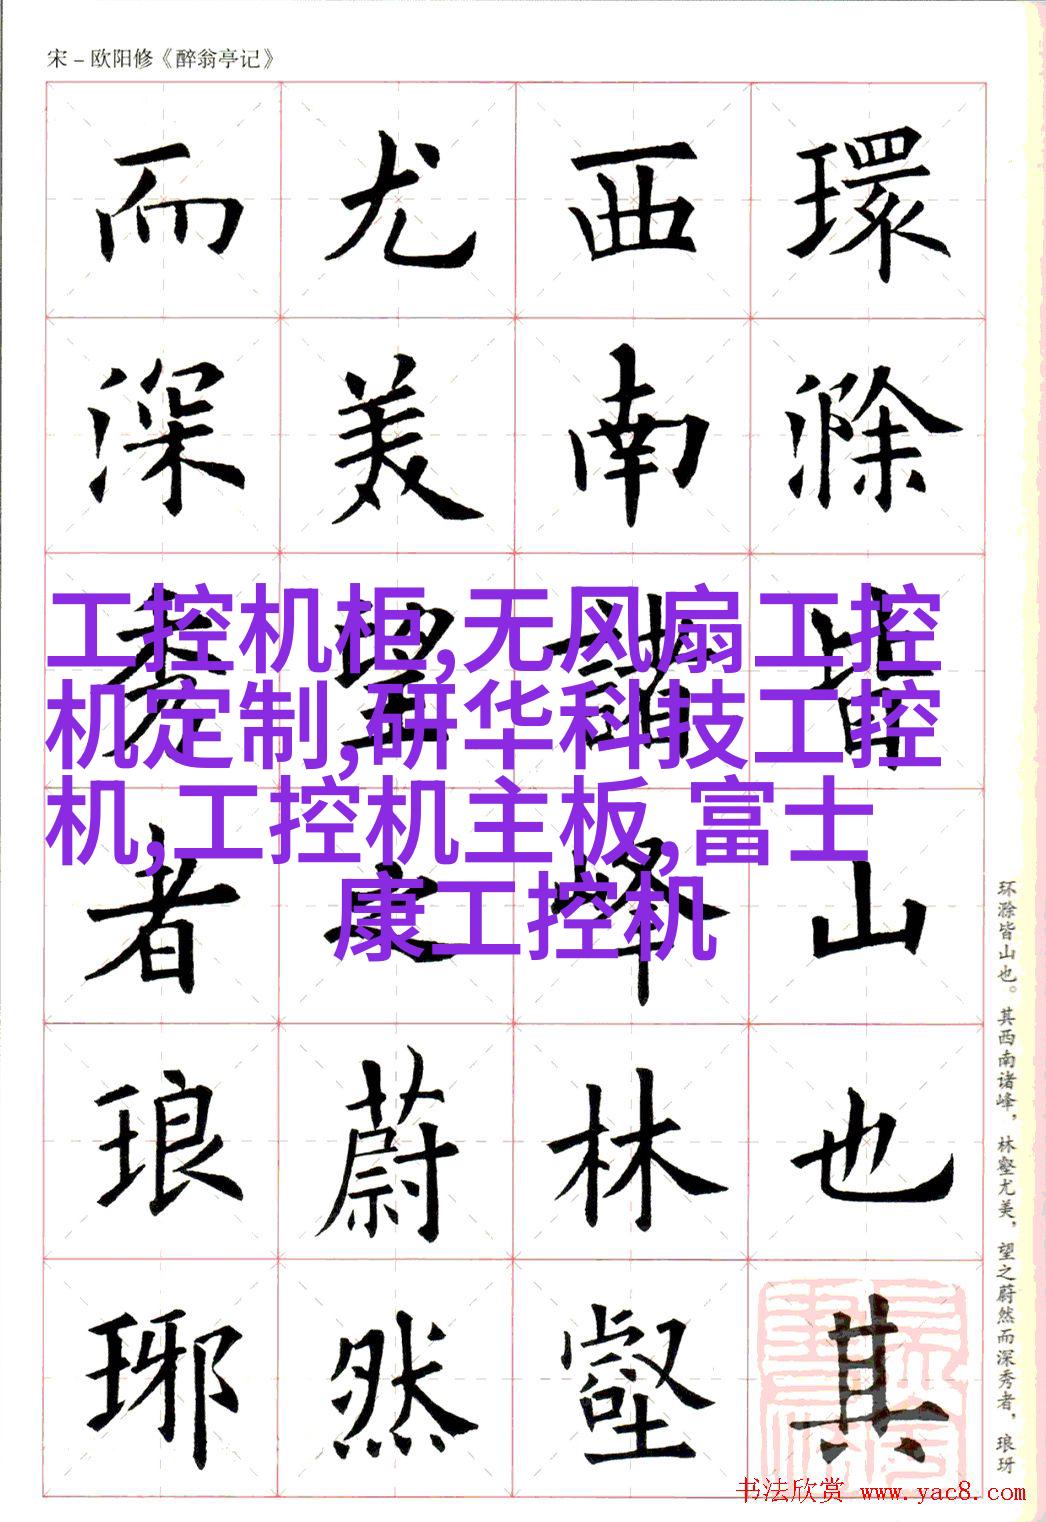 宋－欧阳修《醉翁亭记》
環滁皆山也其
西南諸峰林壑
尤美望之蔚然
而深秀者琅琊
工控机柜,无风扇工控
机定制,研华科技工控
机,工控机主板,富士
康工控机
环滁皆山也。其西南诸峰，林壑尤美，望之蔚然而深秀者，琅玡
书法欣赏 www.yac8.com